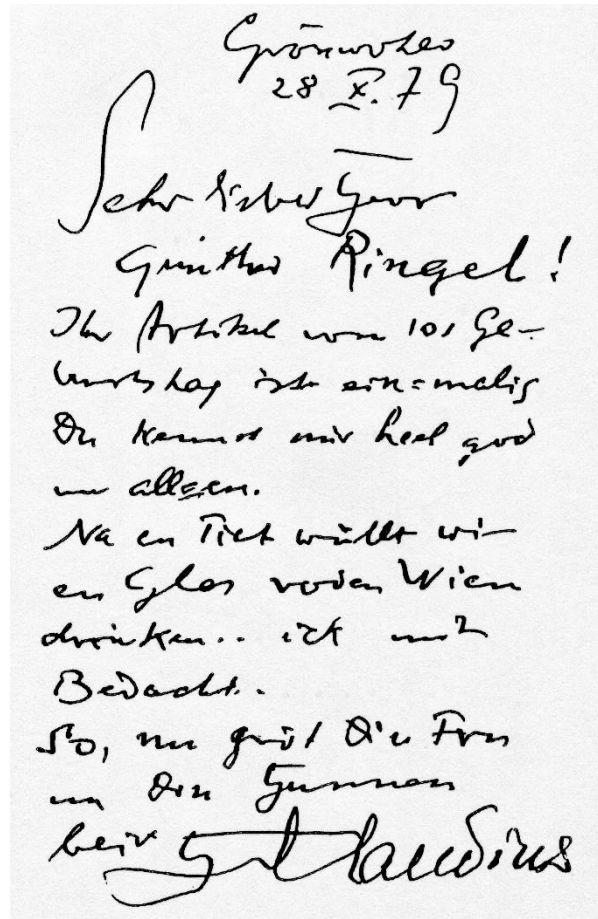 Grönwohld
28 X. 79
Sehr lieber Herr
Günther Ringel!
Ihr Artikel vom 101 Ge-
burtstag ist ein=malig
Du kennst mir heel god
un alleen.
Na en Tiet wüllt wi
en Glas roden Wien
drinken.. ick mit
Bedacht.
So, nu gröt Din Fru
un Din
Claudius